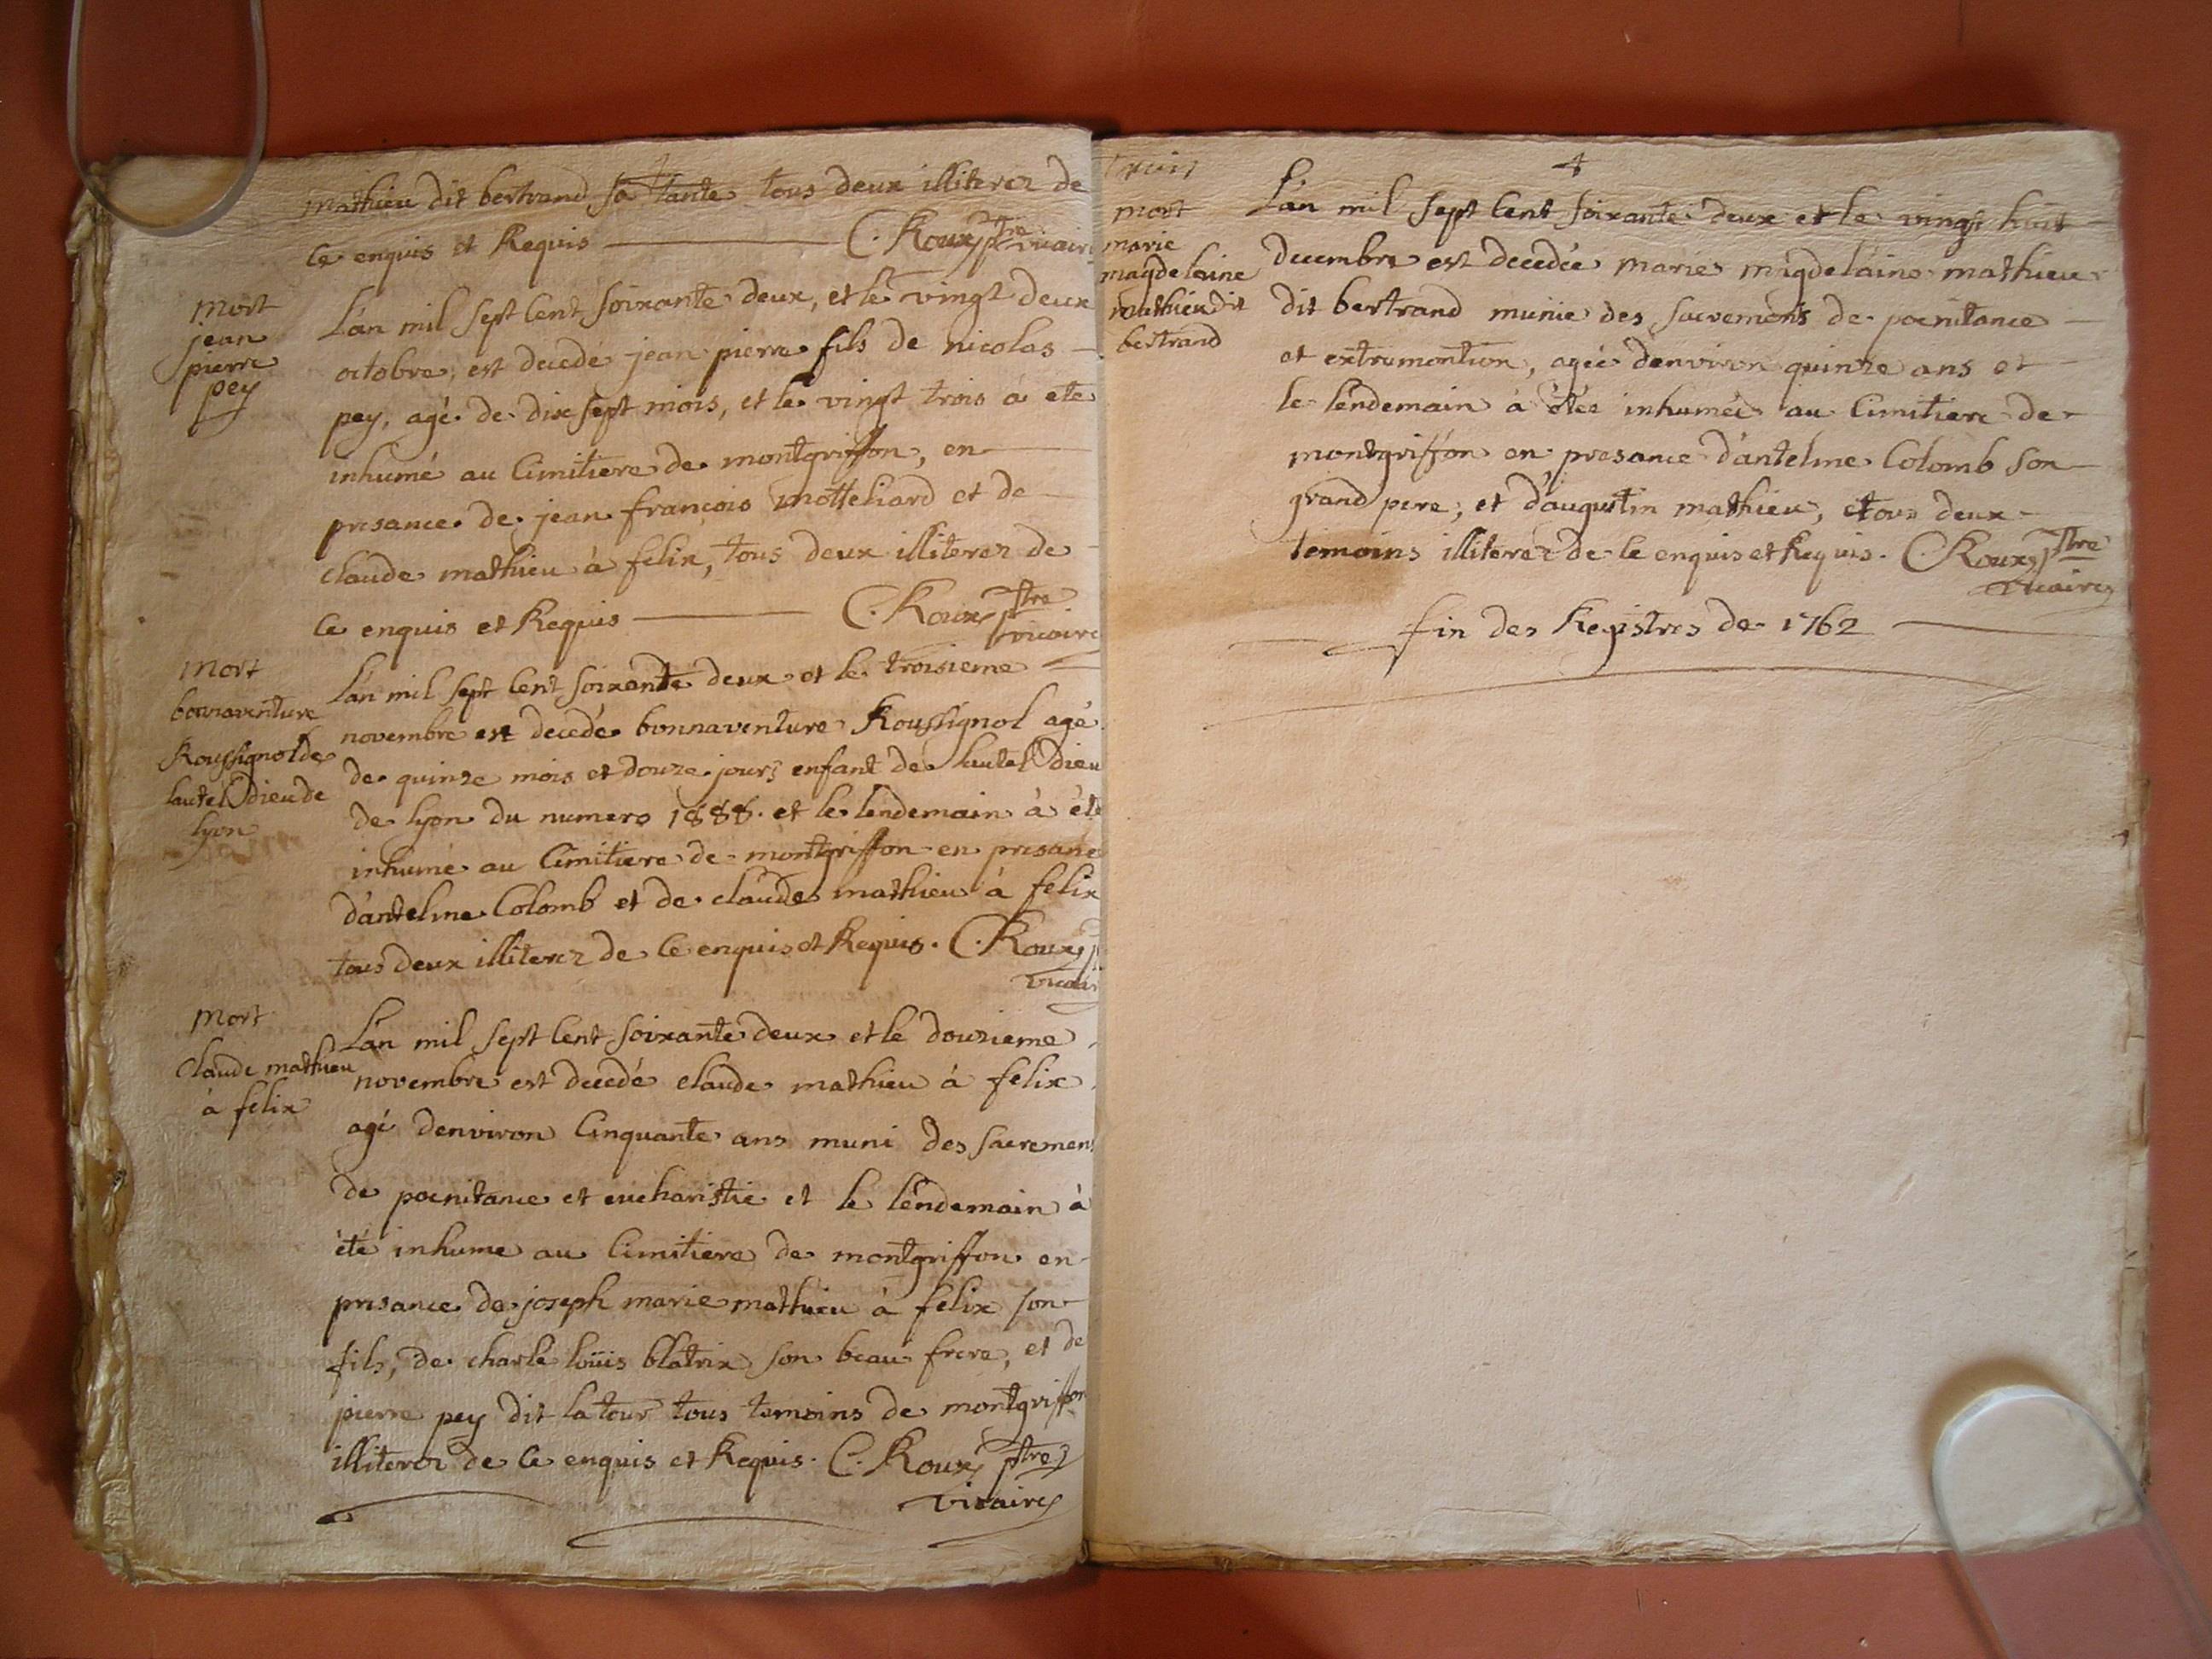 mathieu dit bertrand sa tante tous deux illiterez de
ce enquis et Requis C. Roux ptre vicaire
mort
jean
pierre
pey
L'an mil sept cent soixante deux, et le vingt deux
octobre, est decedé jean pierre fils de nicolas
pey, agé de dix sept mois, et le vingt trois à ete
inhumé au cimitiere de montgriffon, en
presance de jean françois motteliard et de
claude mathieu à felix, tous deux illiterez de
ce enquis et Requis C. Roux ptre
vicaire
mort
bonnaventure
Roussignol de
lautel Dieu de
lyon
L'an mil sept cent soixante deux et le troisieme
novembre est decedé bonnaventure Roussignol agé
de quinze mois et douze jours enfant de lautel Dieu
de lyon du numero 1888. et le lendemain à été
inhumé au cimitiere de montgriffon en presance
d'antelme Colomb et de claude mathieu à felix
tous deux illiterez de ce enquis et Requis. C. Roux p
vicai
mort
Claude mathieu
à felix
L'an mil sept cent soixante deux et le douzieme
novembre est decedé claude mathieu à felix
agé denviron Cinquante ans muni des sacremens
de poenitance et eucharistie et le lendemain à
été inhume au cimitiere de montgriffon en
presance de joseph marie mathieu à felix son
fils, de charle loüis blatrix son beau frere, et de
pierre pey dit la tour tous temoins de montgriffon
illiterez de ce enquis et Requis. C. Roux ptre
vicaire
4
mort
marie
magdelaine
mathieu dit
bertrand
L'an mil sept cent soixante deux et le vingt huit
decembre est decedée marie magdelaine mathieu
dit bertrand munie des sacremens de poenitance
et extremontion, agée denviron quinze ans et
le lendemain à étée inhumée au cimitiere de
montgriffon en presance d'antelme Colomb son
grand pere, et d'augustin mathieu, etous deux
temoins illiterez de ce enquis et Requis. C. Roux ptre
vicaire
fin des Registres de 1762